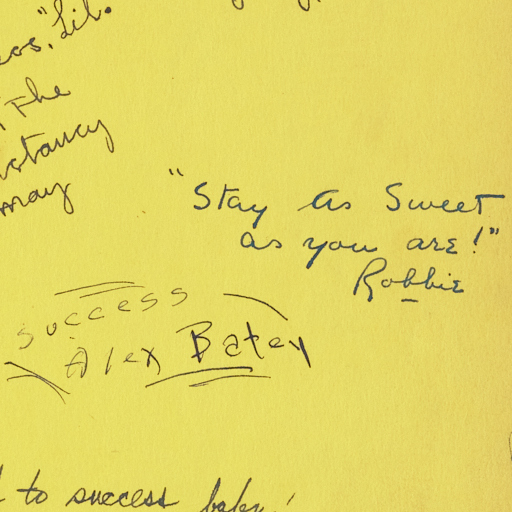 Lil.
The
may
"Stay As Sweet
as you are!"
Robbie
success
Alex Batey
to success baby!